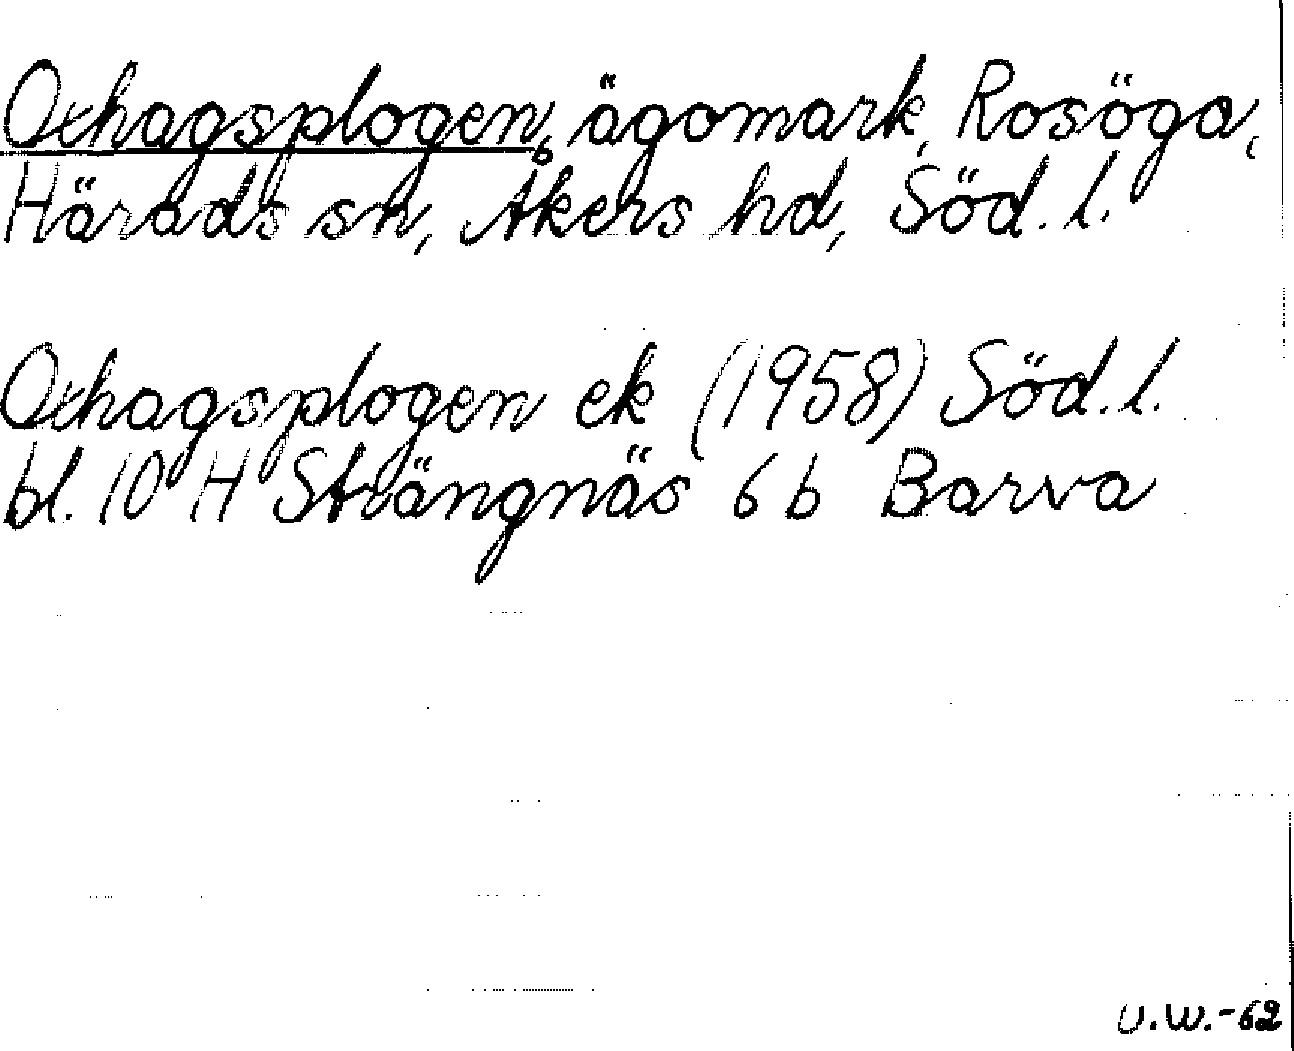 Oxhagsplogen, ägomark, Rosöga,
Härads sn, Åkers hd, Söd. l.
Oxhagsplogen ek (1958) Söd. l.
bl. 10 H Strängnäs 6 b Barva
U.W.-62